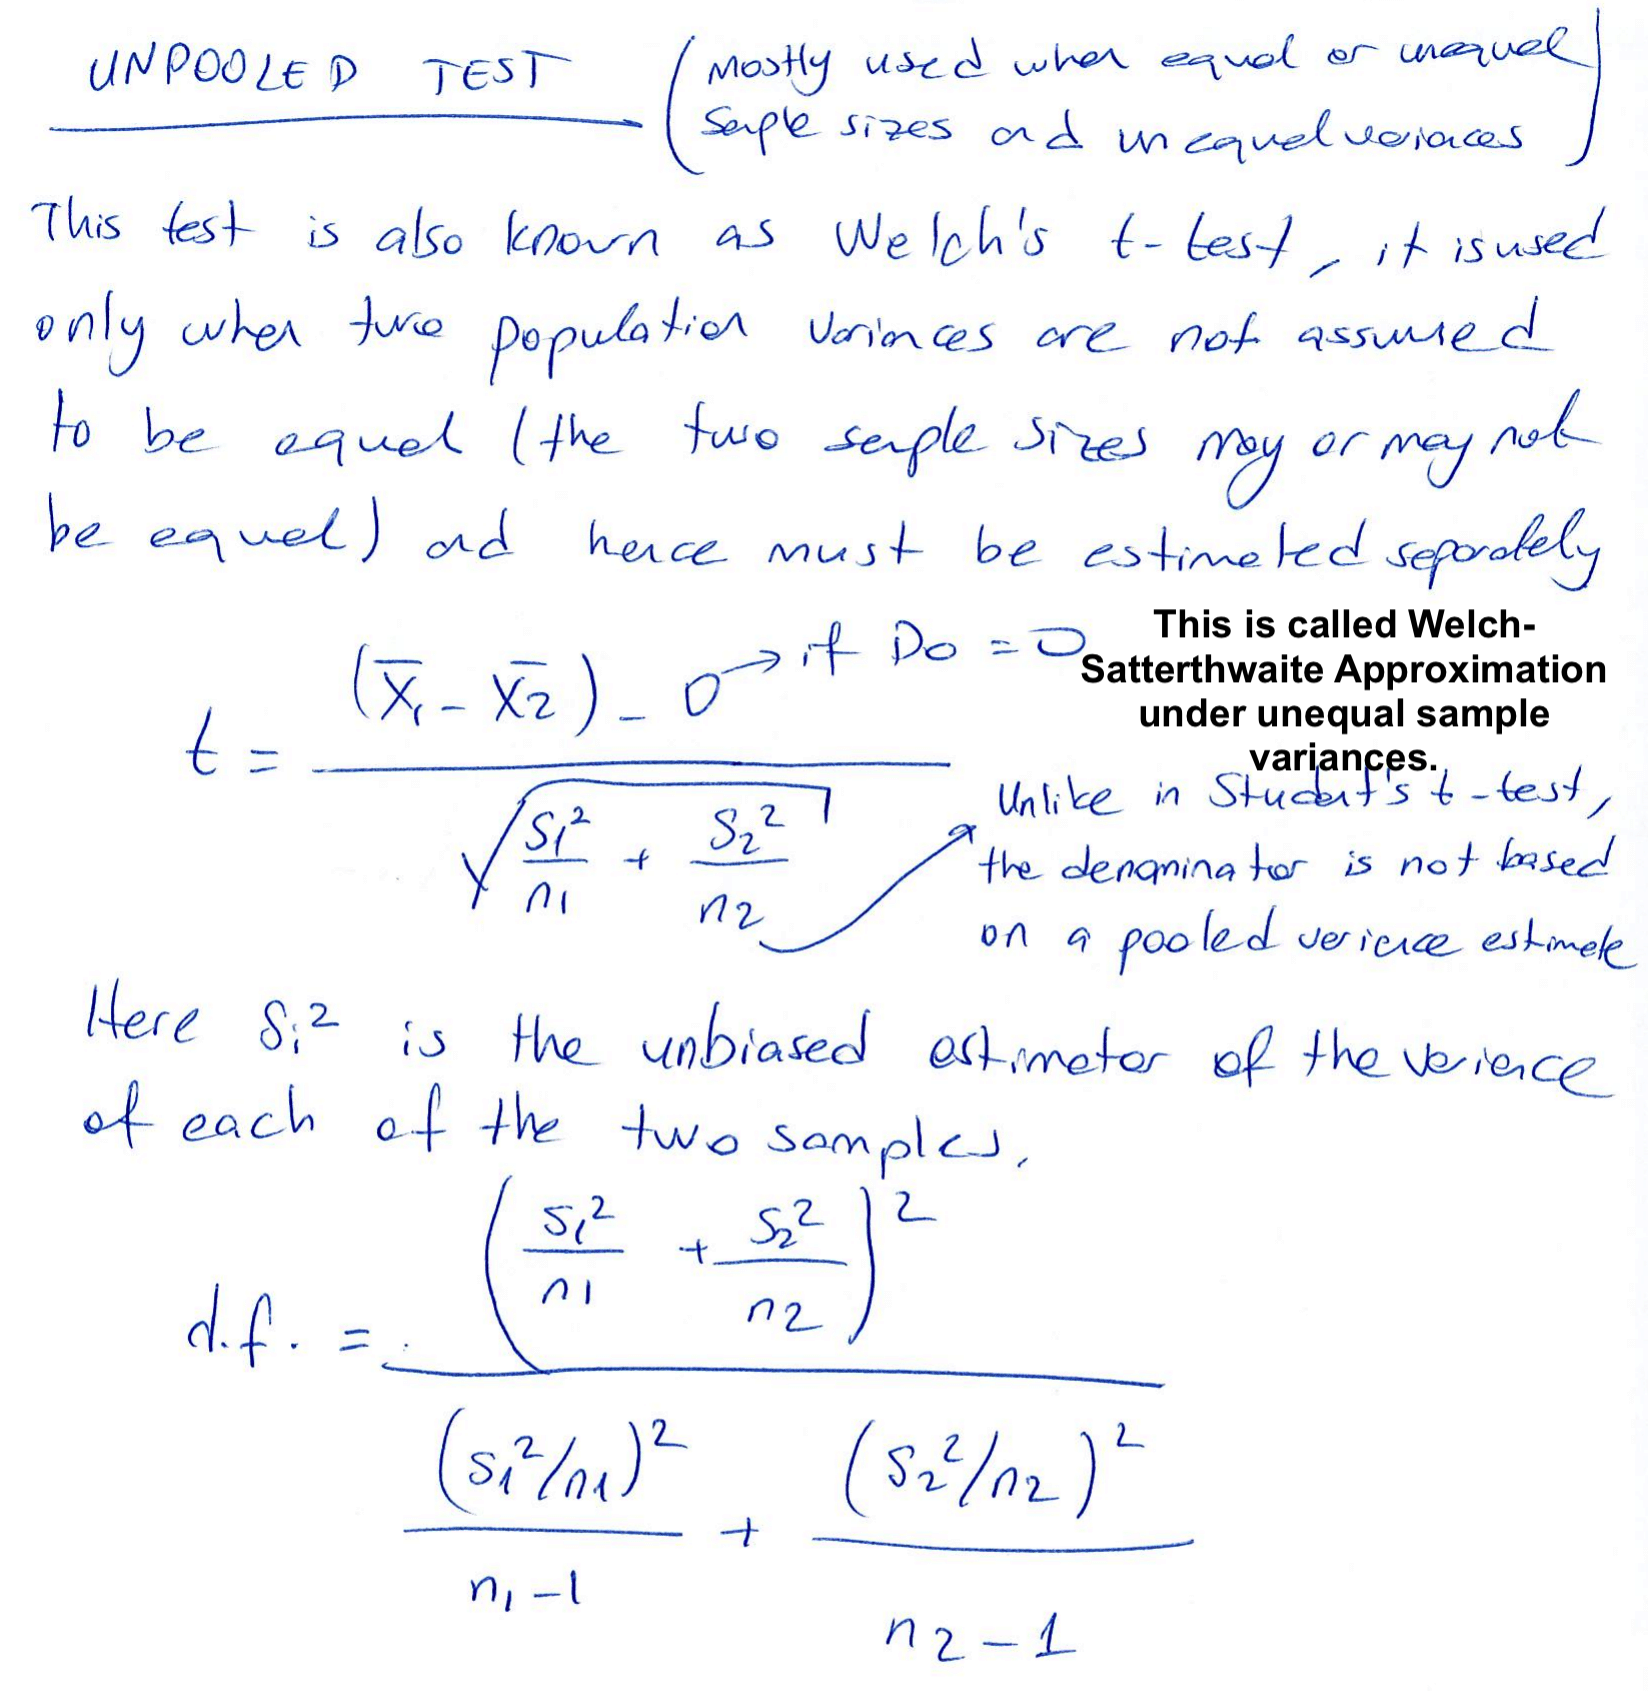 UNPOOLED TEST (Mostly used when equal or unequal
Sample sizes and unequal variances)
This test is also known as Welch's t-test, it is used
only when two population variances are not assumed
to be equal (the two sample sizes may or may not
be equal) and hence must be estimated separately
This is called Welch-
Satterthwaite Approximation
under unequal sample
variances.
t = ((X̄₁ - X̄₂) - 0) / √(S₁²/n₁ + S₂²/n₂)
→ if D₀ = 0
Unlike in Student's t-test,
the denominator is not based
on a pooled variance estimate
Here Sᵢ² is the unbiased estimator of the variance
of each of the two samples.
d.f. = (S₁²/n₁ + S₂²/n₂)² / ((S₁²/n₁)²/(n₁-1) + (S₂²/n₂)²/(n₂-1))